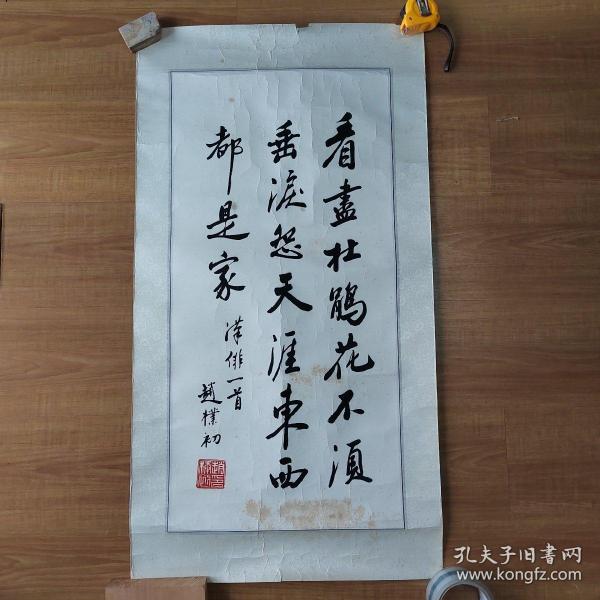 看盡杜鵑花不須
垂淚怨天涯東西
都是家
漢俳一首
趙樸初
孔夫子旧书网
www.kongfz.com